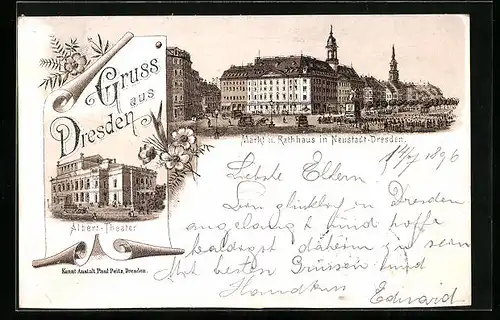 Gruss
aus
Dresden
Markt u. Rathhaus in Neustadt-Dresden.
Albert-Theater
Kunst-Anstalt, Paul Peitz, Dresden.
14/7 1896
Liebste Eltern
Bin glücklich in Dresden
angelangt und hoffe
baldigst daheim zu sein
Mit besten Grüssen und
Handkuss Eduard